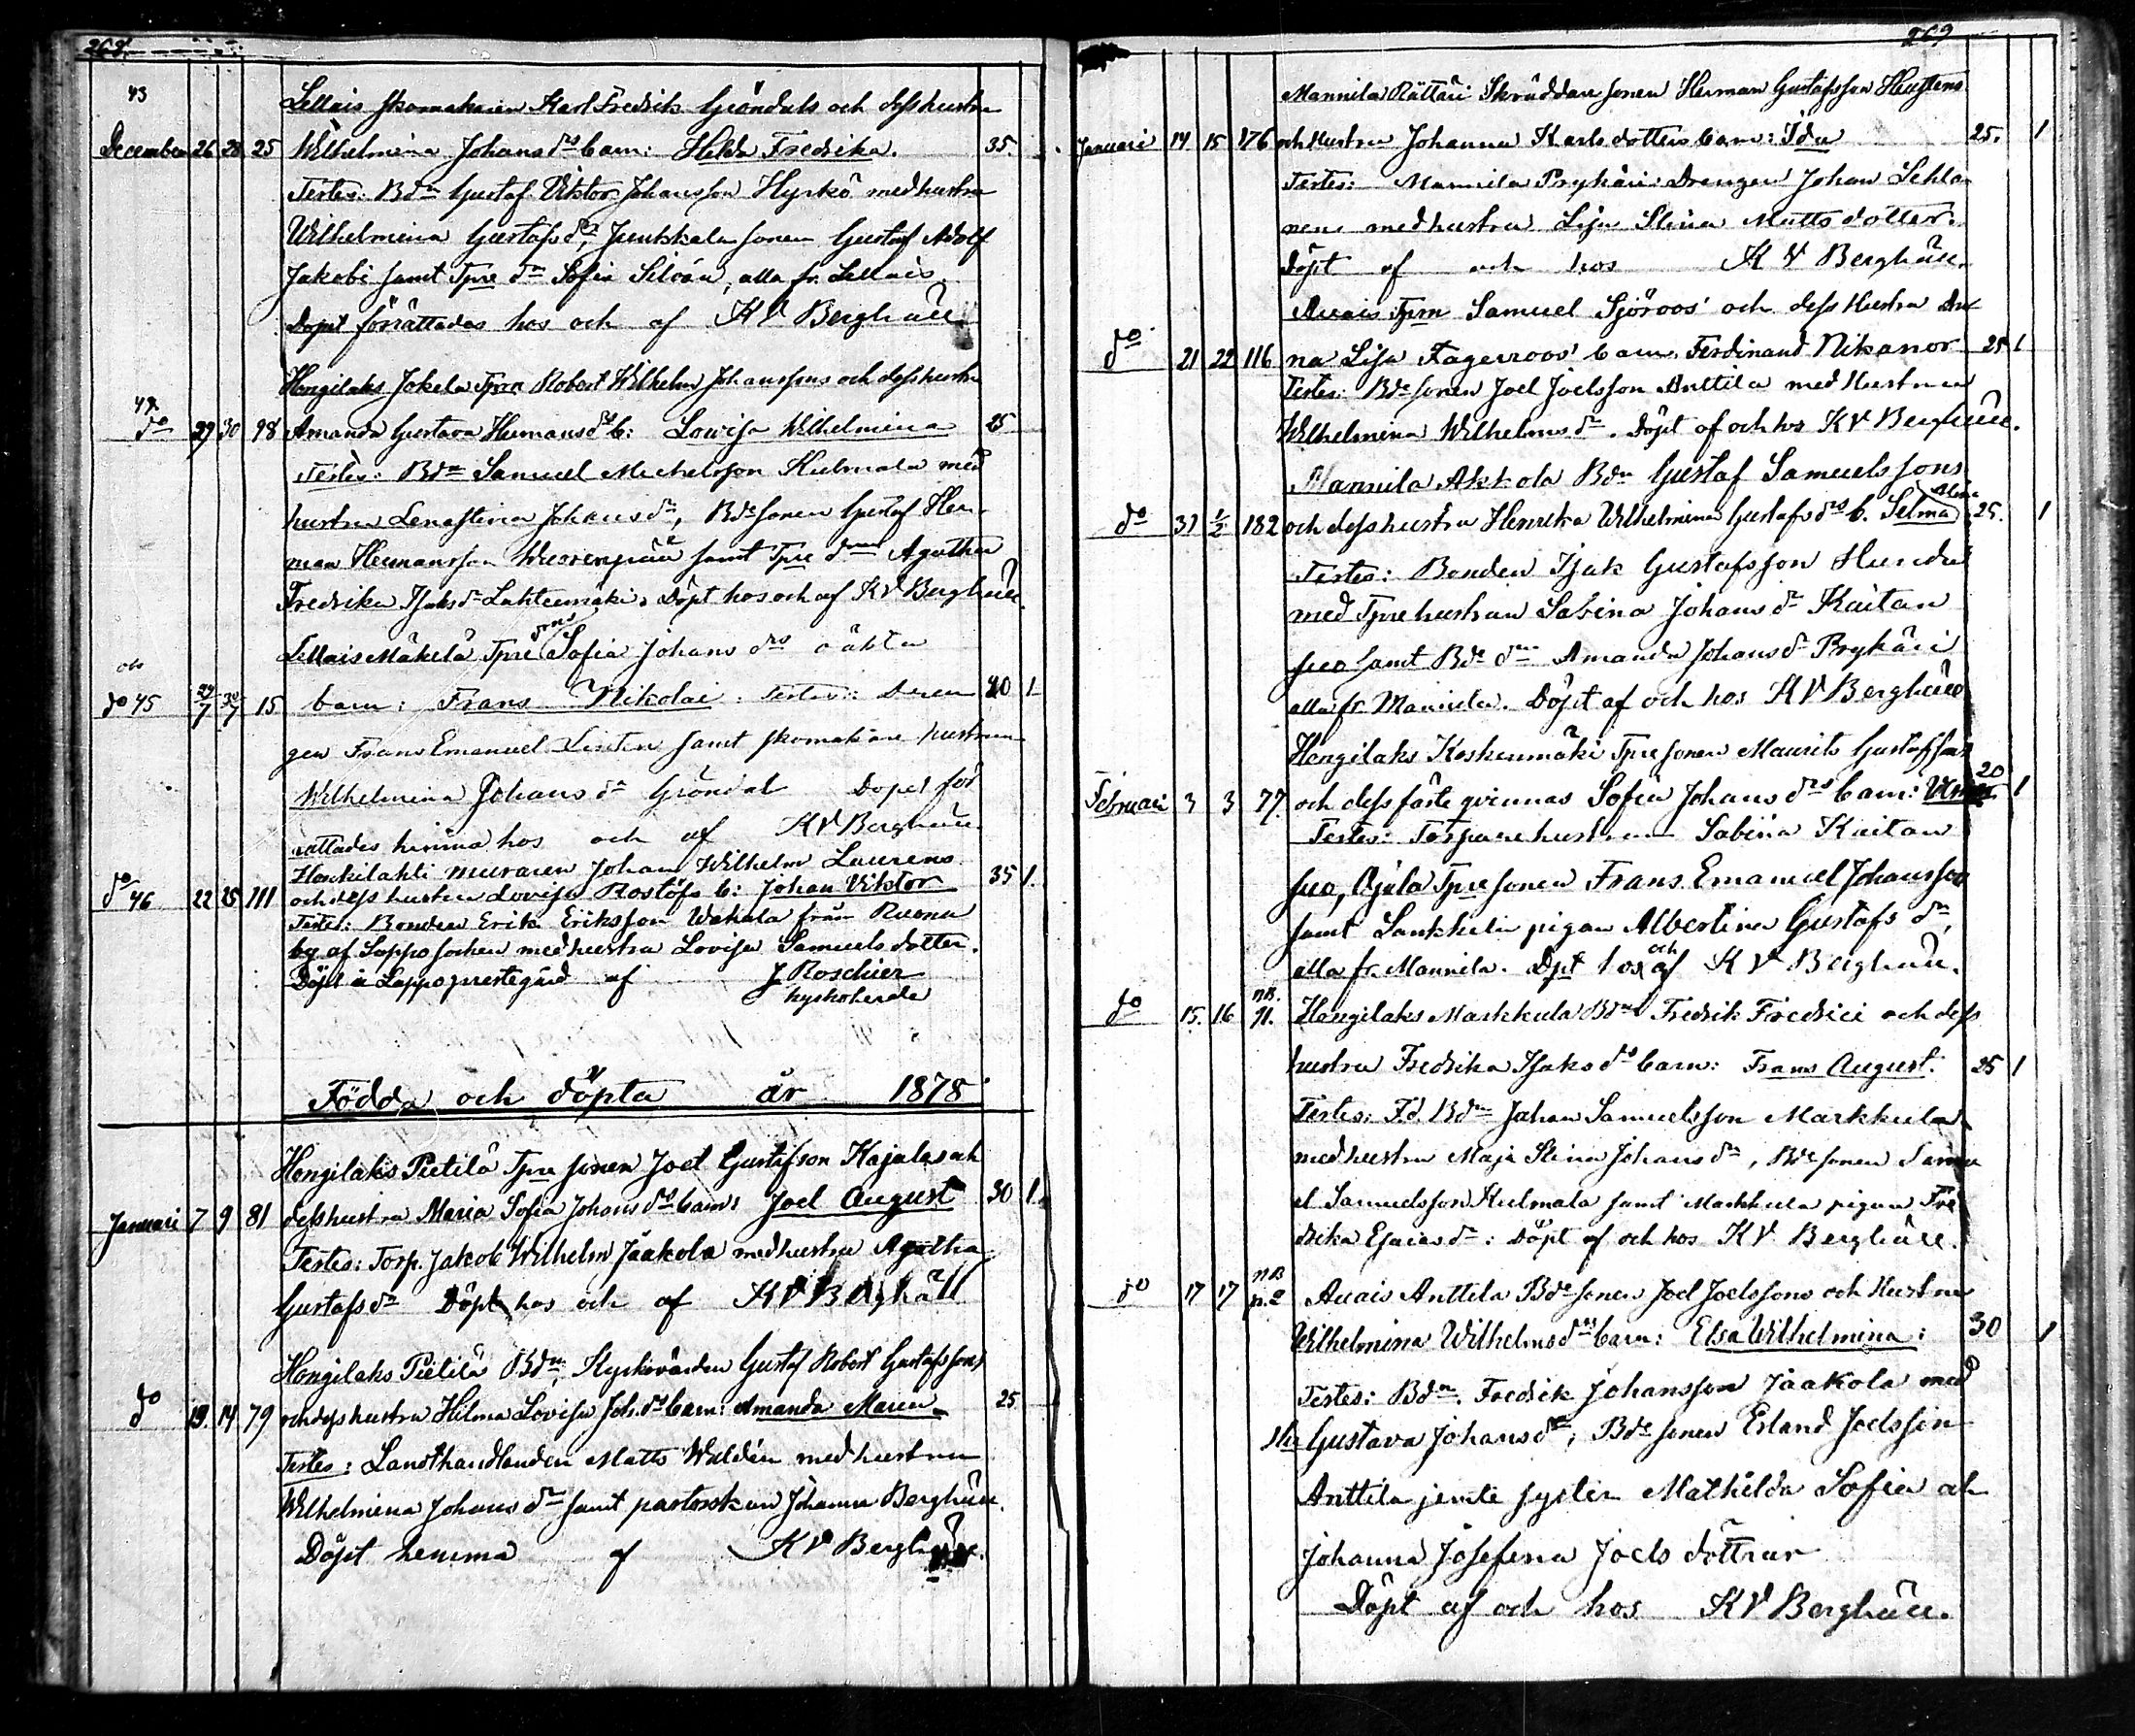 268.
43
Lellais skomakaren Karl Fredrik Gröndals och dess hustru
December 26 28 25 Wilhelmina Johans drs barn: Hilda Fredrika. 35.
Testes: Bdn Gustaf Viktor Johansson Hyrkö med hustru
Wilhelmina Gustafs dr, Junkkala sonen Gustaf Adolf
Jakobi samt Tpre dn Sofia Silván, alla fr. Lellais
Dopet förrättades hos och af K V Berghäll
Hongilaks Jokela Tprn Robert Wilhelm Johanssons och dess hustru
44.
do 29 30 98 Amanda Gustava Hermans drs b: Lovisa Wilhelmina 25
Testes: Bdn Samuel Michelsson Hulmala med
hustru Lenastina Johans dr, Bde sonen Gustaf Her-
man Hermansson Wuorenpää samt Tpre Agatha
Fredrika Isaks dr Lahteenmäki. Döpt hos och af K V Berghäll.
Lellais Mäkelä Tpre drns Sofia Johans drs oäkta
do 45 29/7 30/7 15 barn: Frans Nikolai. Testes: Dren 20 1
gen Frans Emanuel samt skomakare hustrun
Wilhelmina Johans dr Gröndal Dopet för
rättades hemma hos och af K V Berghäll
Honkilahti muraren Johan Wilhelm Laurens
do 46 22 25 111 och dess hustru Lovisa Rostöfs b: Johan Viktor 35 1.
Testes: Bonden Erik Eriksson Wahala från Ruona
by af Lappo socken med hustru Lovisa Samuels dotter.
Döpt i Lappo prestegård af J Roschier
kyrkoherde
Födda och döpta år 1878
Hongilaks Pietilä Tpre sonen Joel Gustafson Kajalas och
Januari 7 9 81 dess hustru Maria Sofia Johans drs barn: Joel August 30 1.
Testes: Torp. Jakob Wilhelm Jaakola med hustru Agatha
Gustafs dr Döpt hos och af K V Berghäll
Hongilaks Pietilä Bdn, Kyrkovärden Gustaf Robert Gustafssons
do 13. 14 79 och dess hustru Hilma Lovisa Joh. drs barn: Amanda Maria. 25
Testes: Landthandlanden Matts Waldén med hustru
Wilhelmina Johans dr samt pastorskan Johanna Berghäll.
Döpt hemma af K V Berghäll.
269
Mannila Rättäri Skräddare sonen Herman Gustafsson Hengstens
Januari 14 15 176 och hustru Johanna Karls dotters barn: Ida 25. 1
Testes: Mannila Prykäri Drengen Johan Lehto
nen med hustru Lisa Stina Matts dotter.
Döpt af och hos K V Berghäll.
Auais Tprn Samuel Sjöroos' och dess Hustru An
do 21 22 116 na Lisa Fagerroos' barn. Ferdinand Nikanor 25 1
Testes: Bde sonen Joel Joelsson Anttila med Hustrun
Wilhelmina Wilhelms dr. Döpt af och hos K V Berghäll.
Mannila Akkola Bdn Gustaf Samuelssons
do 31 1/2 182 och dess hustru Henrika Wilhelmina Gustafs drs b. Selma Alina 25. 1
Testes: Bonden Isak Gustafsson Hurula
med Tpre hustrun Sabina Johans dr Kaitan
suo samt Bde drn Amanda Johans dr Prykäri
alla fr. Mannila. Döpt af och hos K V Berghäll
Hongilaks Koskenmäki Tpre sonen Maurits Gustafssons
Februari 3 3 77. och dess fästeqvinnas Sofia Johans drs barn: 20 1
Testes: Torpare hustrun Sabina Kaitan
suo, Ojala Tpre sonen Frans Emanuel Johansson
samt Lankkelin pigan Albertina Gustafs dr,
alla fr. Mannila. Döpt hos och af K V Berghäll.
NB.
do 15. 16 71. Hongilaks Markkula Bdn Fredrik Fredrici och dess
hustru Fredrika Isaks drs barn: Frans August. 25 1
Testes: Fd. Bdn Johan Samuelsson Markkula
med hustru Maja Stina Johans dr, Bde sonen Samu
el Samuelsson Hulmala samt Markkula pigan Fre
drika Esaias dr. Döpt af och hos K V Berghäll.
NB
do 17 17 112 Auais Anttila Bde sonen Joel Joelssons och Hustru
Wilhelmina Wilhelms drs barn: Elsa Wilhelmina: 30 1
Testes: Bdn. Fredrik Johansson Jaakola med
Hu Gustava Johans dr, Bde sonen Erland Joelsson
Anttila jemte syster Mathilda Sofia och
Johanna Josefina Joels döttrar
Döpt af och hos K V Berghäll.